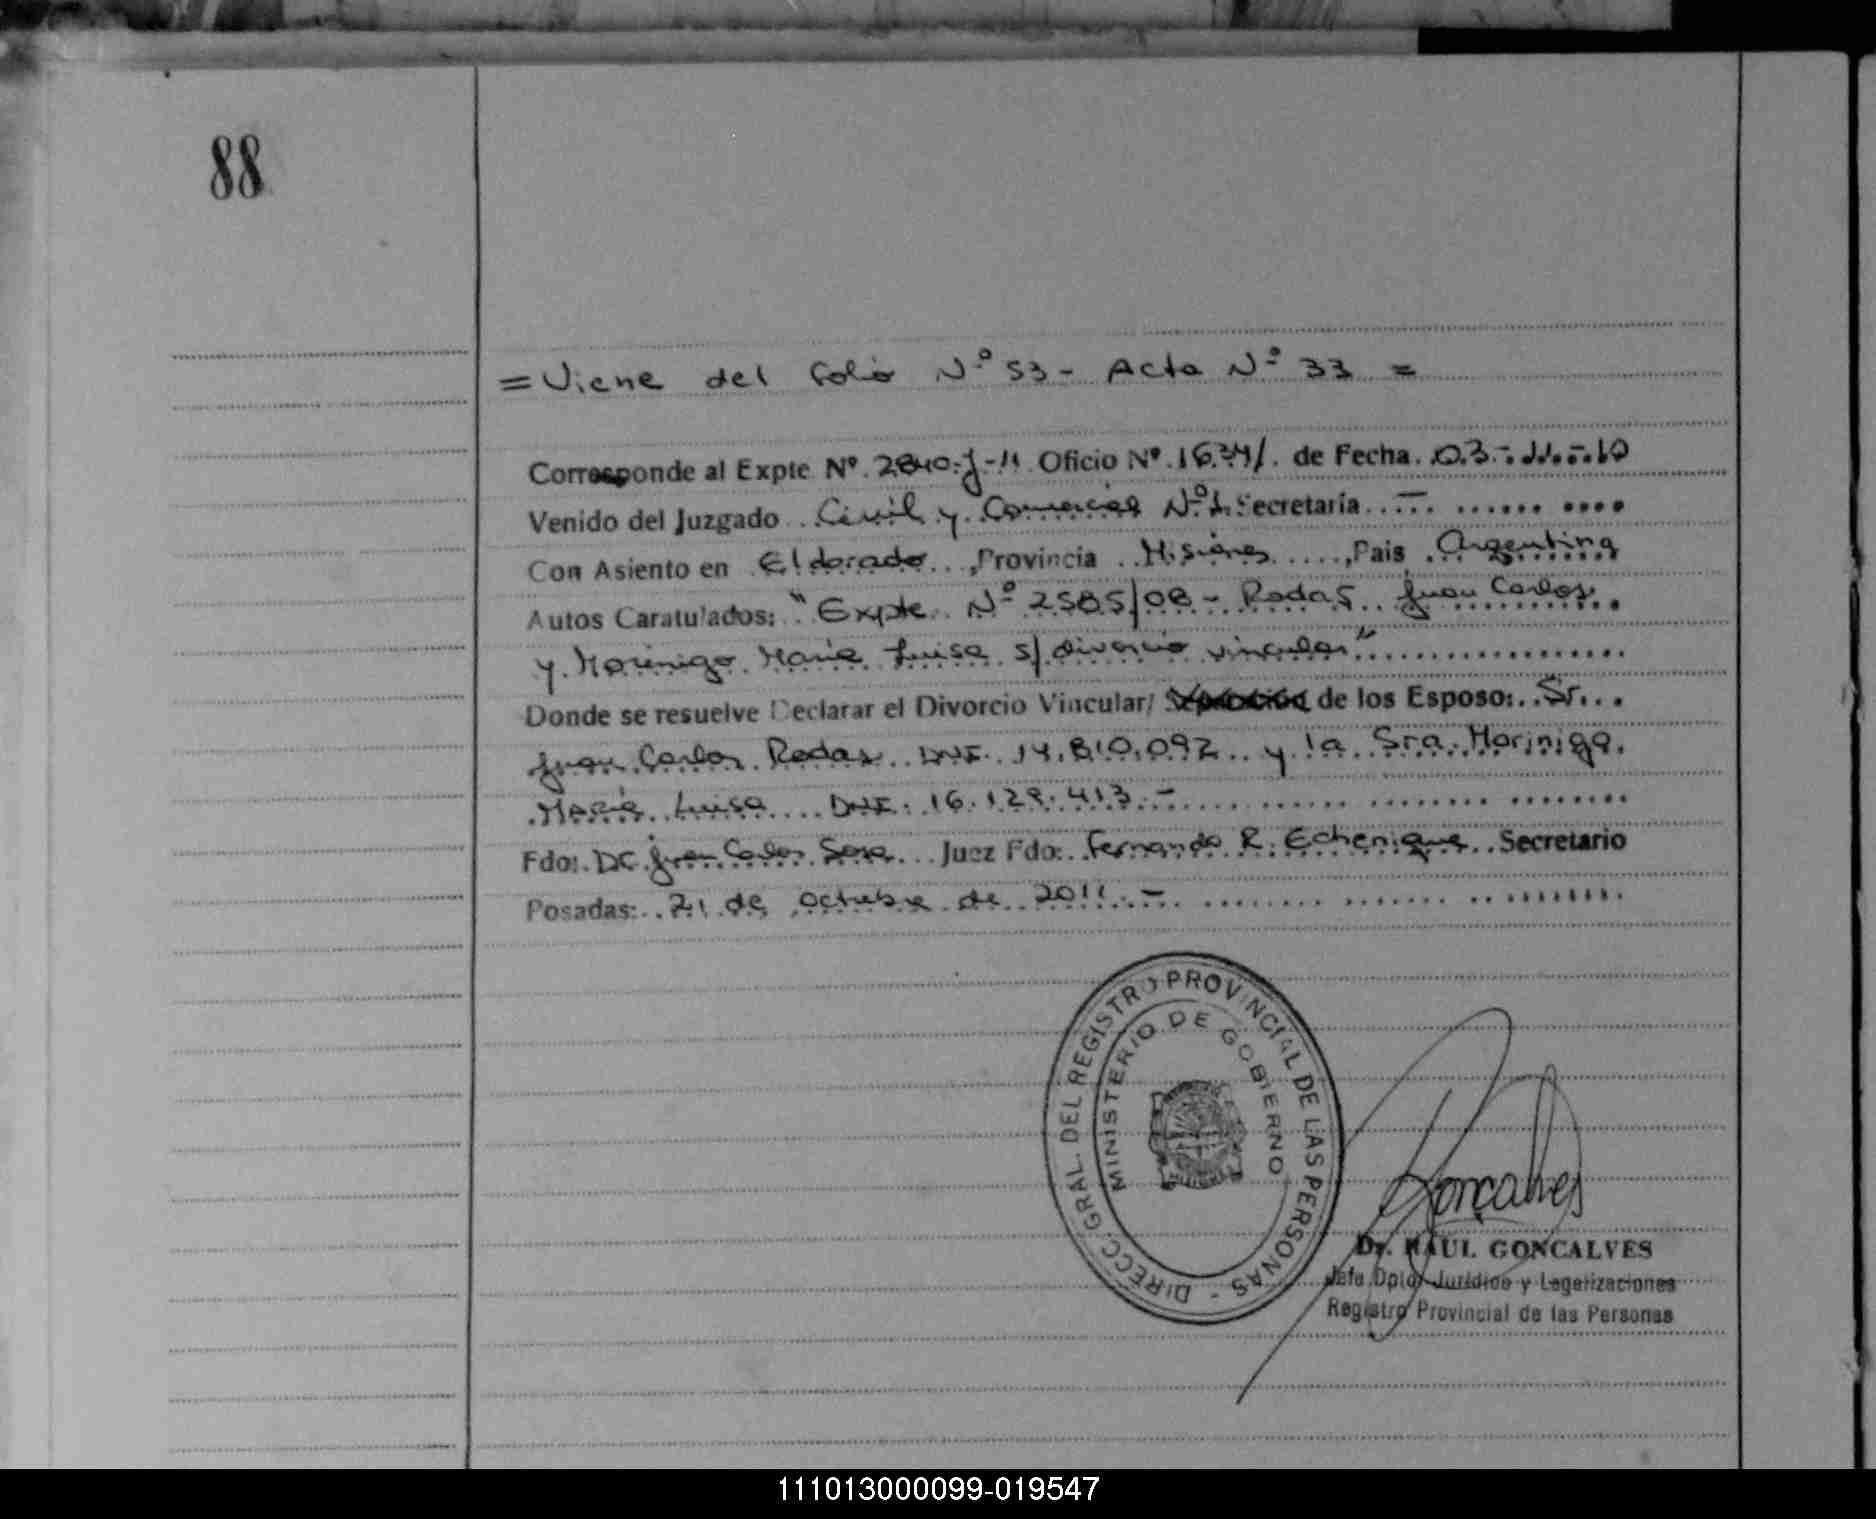 88
= Viene del folio Nº 53 - Acta Nº 33 =
Corresponde al Expte Nº 2840-J-11 Oficio Nº 1634/. de Fecha 03-11-10
Venido del Juzgado Civil y Comercial Nº 1. Secretaría . -
Con Asiento en Eldorado, Provincia Misiones, Pais Argentina
Autos Caratulados: "Expte Nº 2585/08 - Rodas Juan Carlos
y Morinigo Maria Luisa s/divorcio vincular"
Donde se resuelve Declarar el Divorcio Vincular/ Separación de los Esposo: Sr.
Juan Carlos Rodas DNI. 14.810.092 y la Sra. Morinigo
Maria Luisa DNI. 16.129.413.-
Fdo: Dr. Juan Carlos Sosa Juez Fdo: Fernando R. Echenique Secretario
Posadas: 21 de octubre de 2011.-
DIRECC. GRAL. DEL REGISTRO PROVINCIAL DE LAS PERSONAS -
MINISTERIO DE GOBIERNO
MISIONES
Goncalves
Dr. RAUL GONCALVES
Jefe Dpto. Jurídico y Legalizaciones
Registro Provincial de las Personas
111013000099-019547